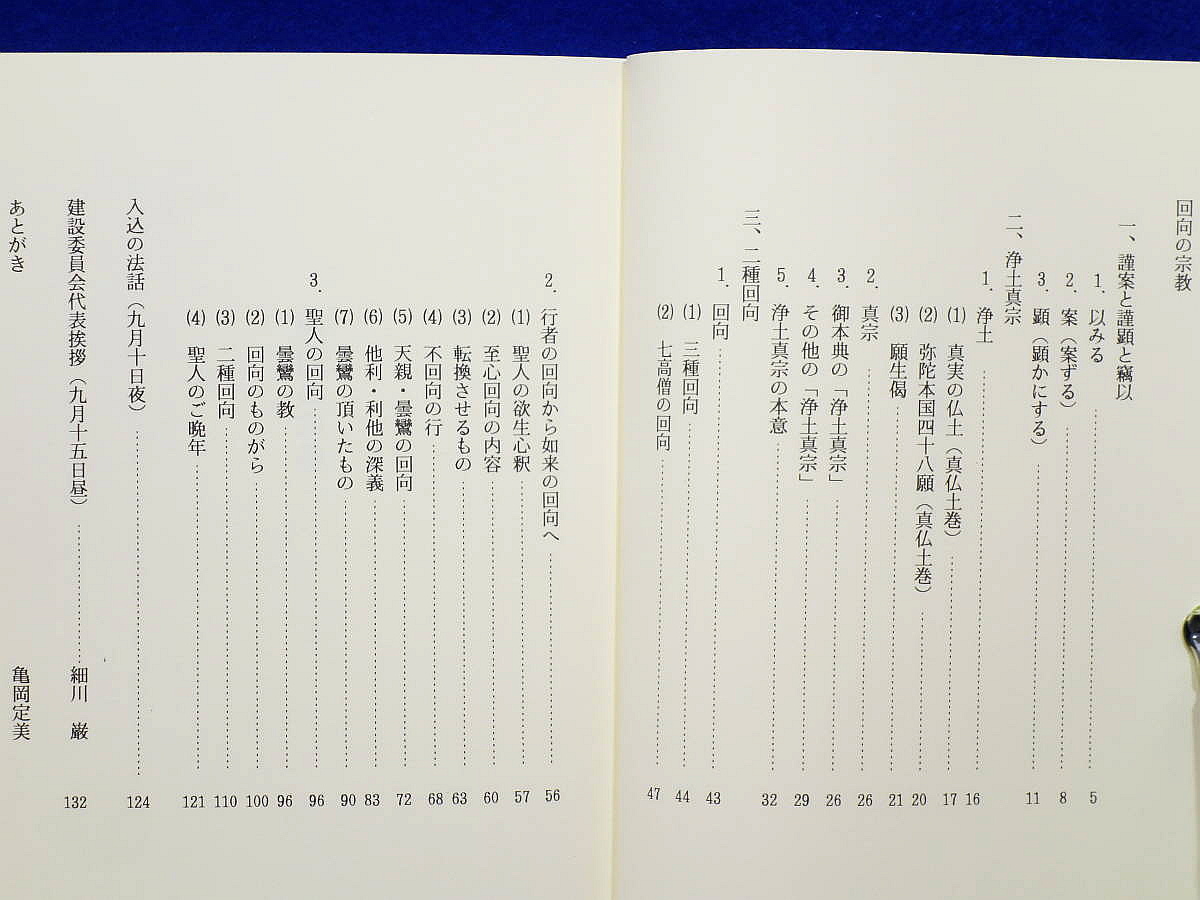 回向の宗教
一、謹案と謹顕と竊以
1．以みる……5
2．案（案ずる）……8
3．顕（顕かにする）……11
二、浄土真宗
1．浄土……16
(1) 真実の仏土（真仏土巻）……17
(2) 弥陀本国四十八願（真仏土巻）……20
(3) 願生偈……21
2．真宗……26
3．御本典の「浄土真宗」……26
4．その他の「浄土真宗」……29
5．浄土真宗の本意……32
三、二種回向
1．回向……43
(1) 三種回向……44
(2) 七高僧の回向……47
2．行者の回向から如来の回向へ……56
(1) 聖人の欲生心釈……57
(2) 至心回向の内容……60
(3) 転換させるもの……63
(4) 不回向の行……68
(5) 天親・曇鸞の回向……72
(6) 他利・利他の深義……83
(7) 曇鸞の頂いたもの……90
3．聖人の回向……96
(1) 曇鸞の教……96
(2) 回向のものがら……100
(3) 二種回向……110
(4) 聖人のご晩年……121
入込の法話（九月十日夜）……124
建設委員会代表挨拶（九月十五日昼）……細川　巌　132
あとがき　亀岡定美